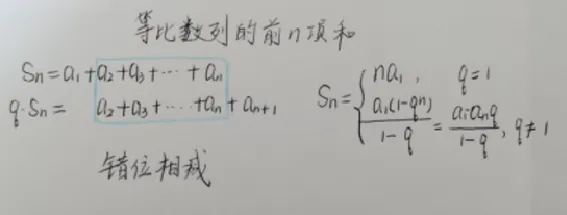 等比数列的前n项和
Sn=a1+a2+a3+⋯+an
q·Sn= a2+a3+⋯+an+an+1
错位相减
Sn={na1, q=1
an(1-qn)/1-q = a1-anq/1-q, q≠1